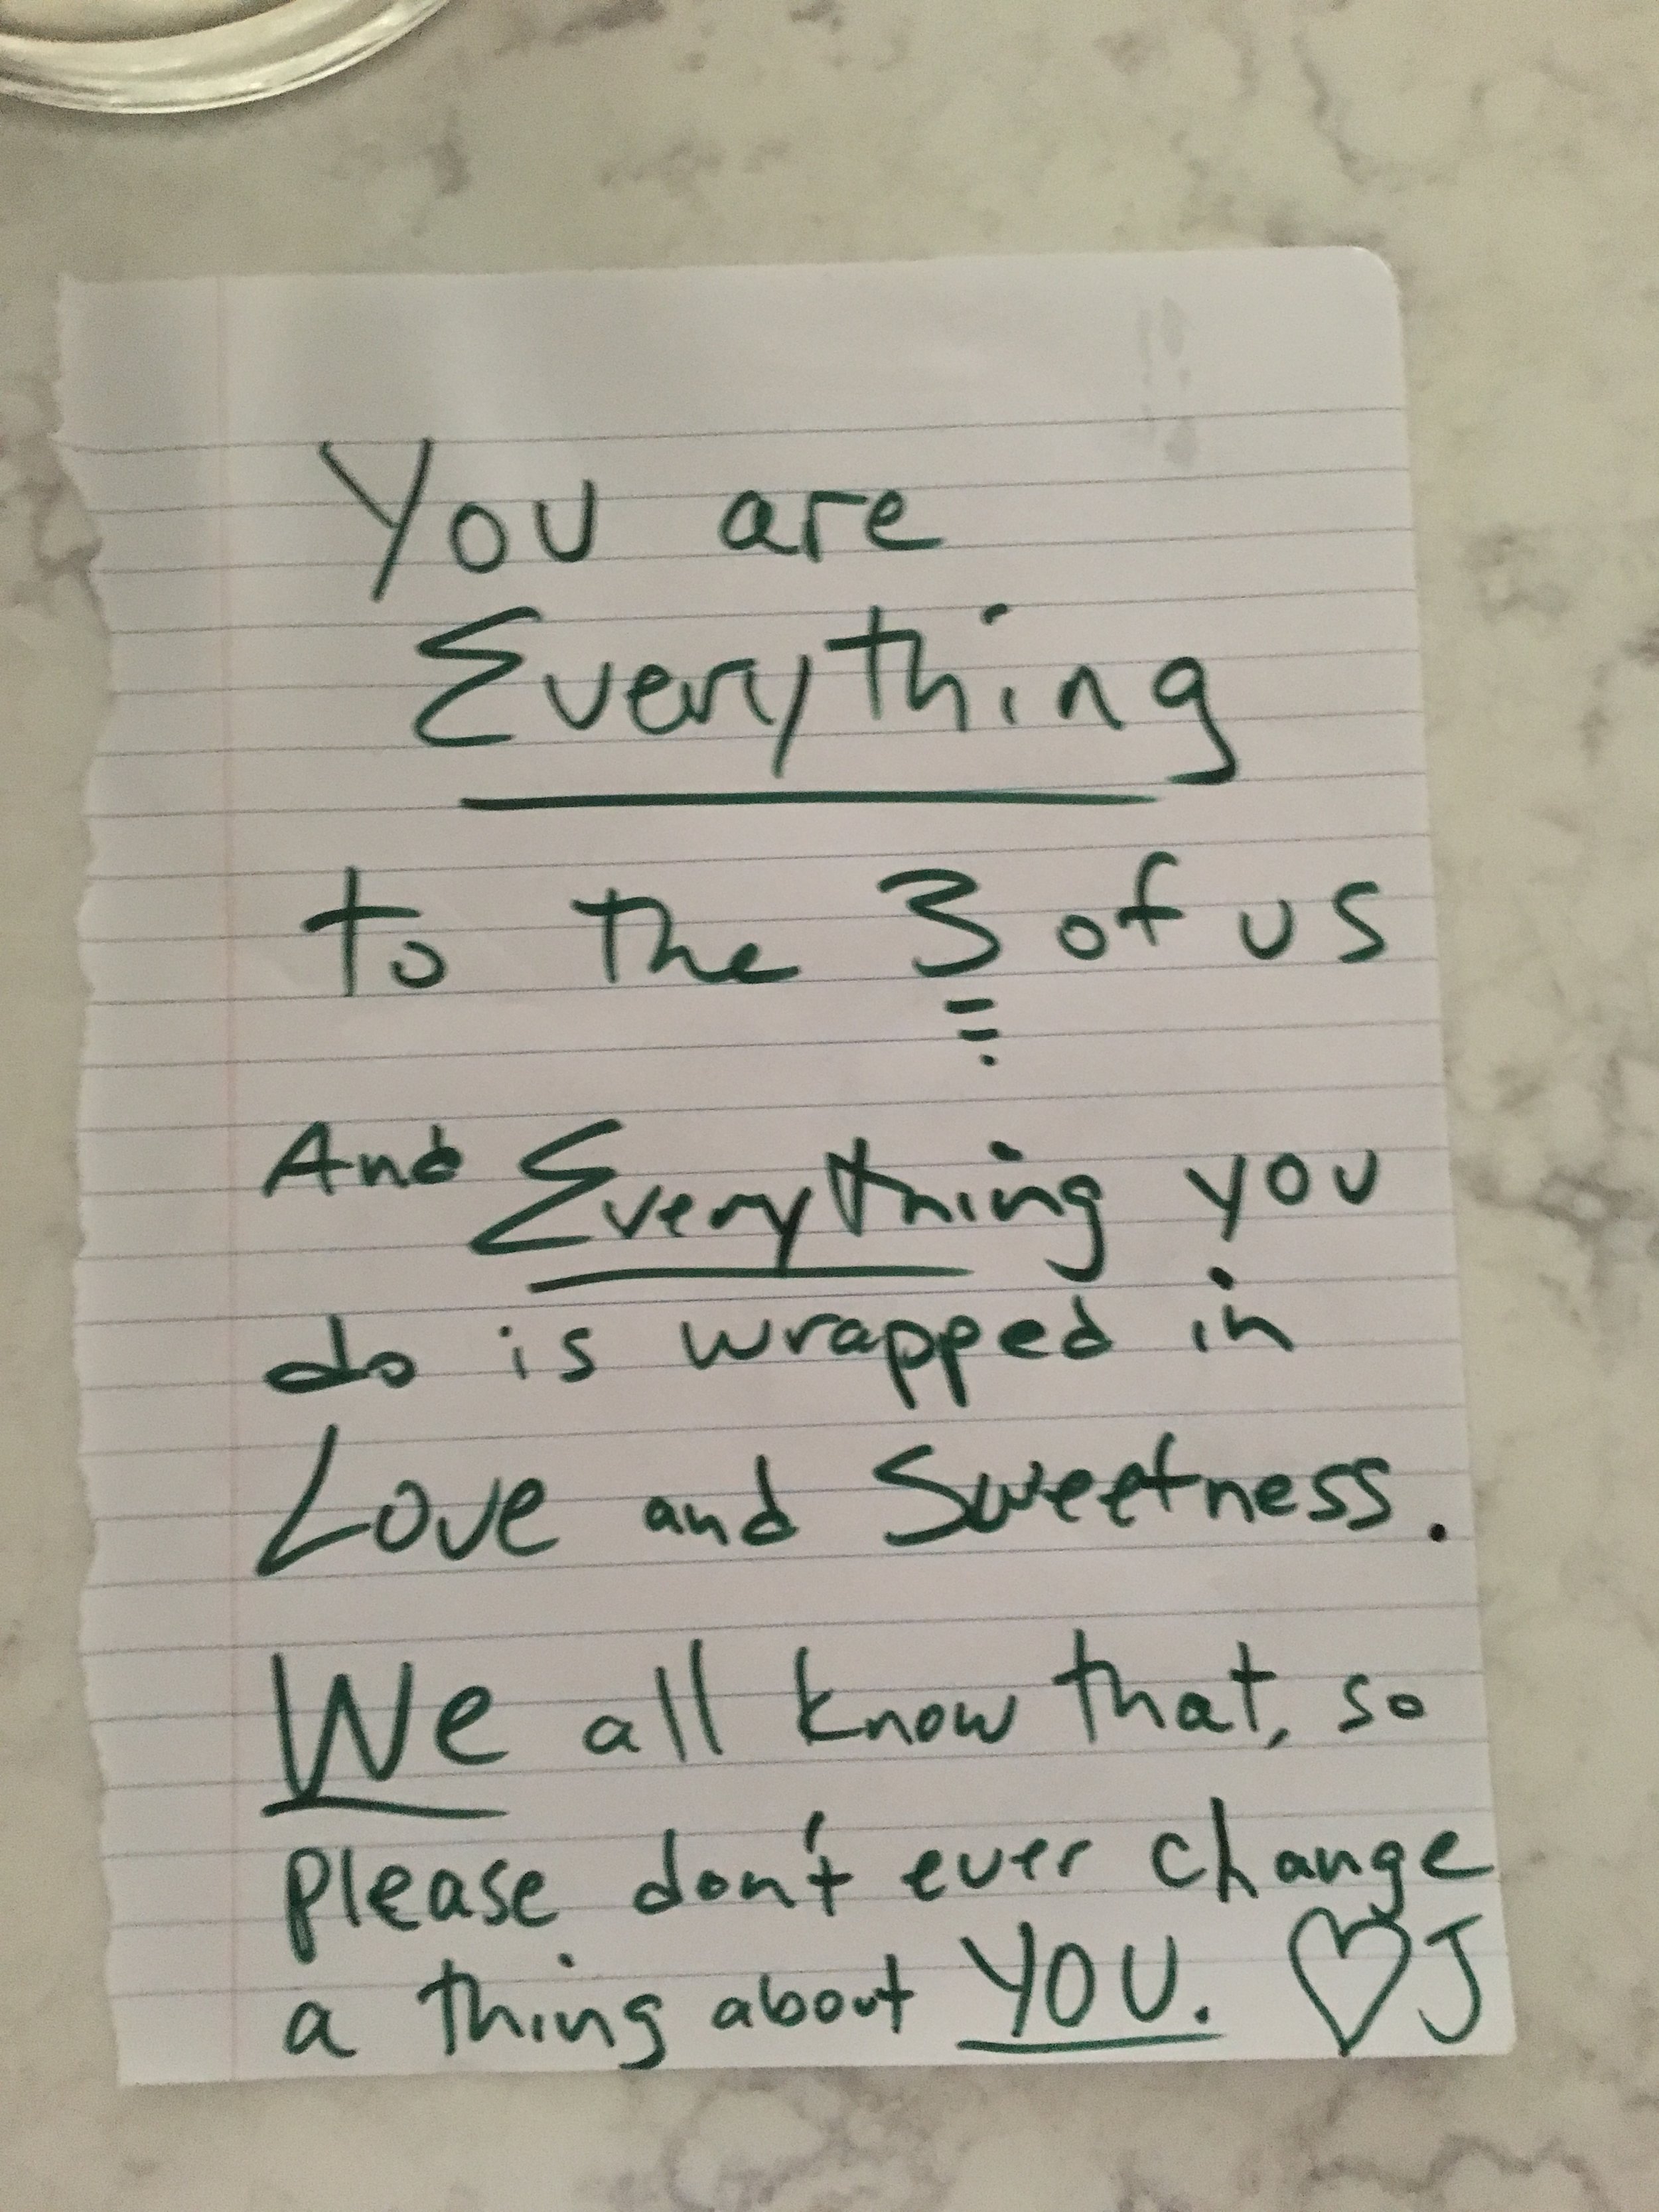 You are
Everything
to the 3 of us
And Everything you
do is wrapped in
Love and Sweetness.
We all know that, so
please don't ever change
a thing about YOU. ♡J